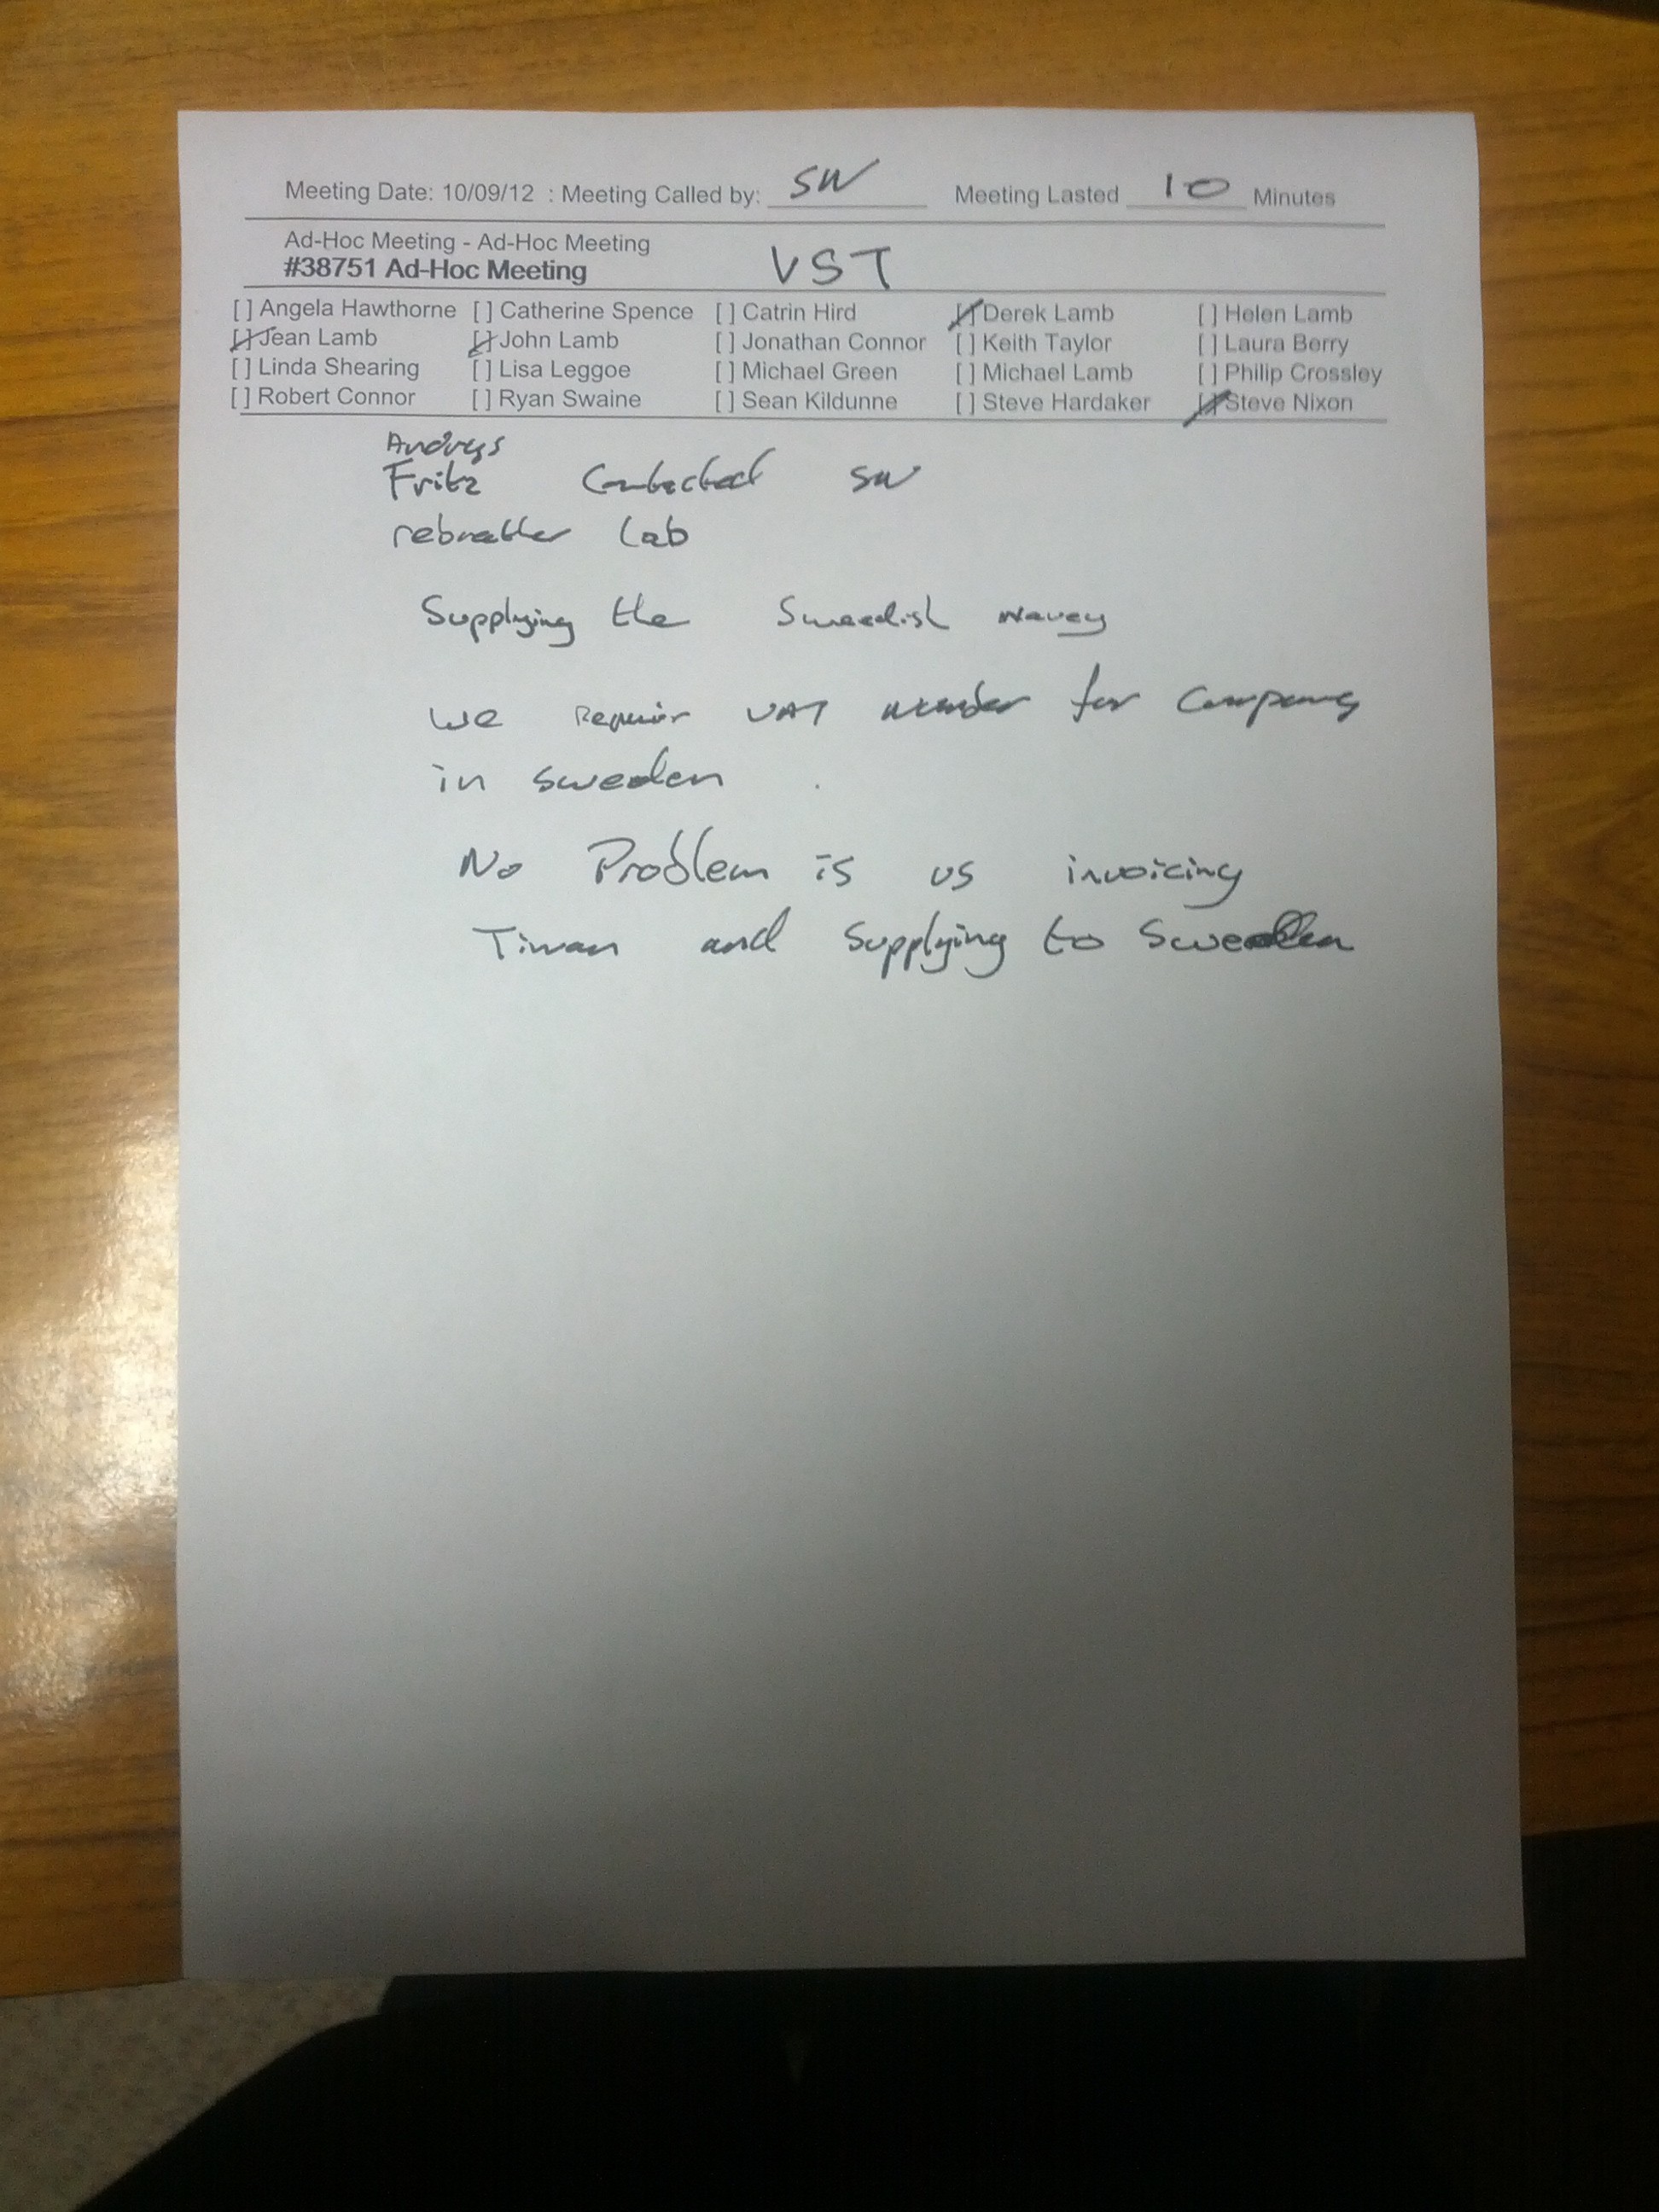 Meeting Date: 10/09/12 : Meeting Called by: SW Meeting Lasted 10 Minutes
Ad-Hoc Meeting - Ad-Hoc Meeting
#38751 Ad-Hoc Meeting VST
[ ] Angela Hawthorne [ ] Catherine Spence [ ] Catrin Hird [/] Derek Lamb [ ] Helen Lamb
[/] Jean Lamb [/] John Lamb [ ] Jonathan Connor [ ] Keith Taylor [ ] Laura Berry
[ ] Linda Shearing [ ] Lisa Leggoe [ ] Michael Green [ ] Michael Lamb [ ] Philip Crossley
[ ] Robert Connor [ ] Ryan Swaine [ ] Sean Kildunne [ ] Steve Hardaker [/] Steve Nixon
Fritz Contacted SW
lab
Supplying the Sweedish
we VAT number for Company
in sweden .
No Problem is us invoicing
Tiwan and supplying to Sweden